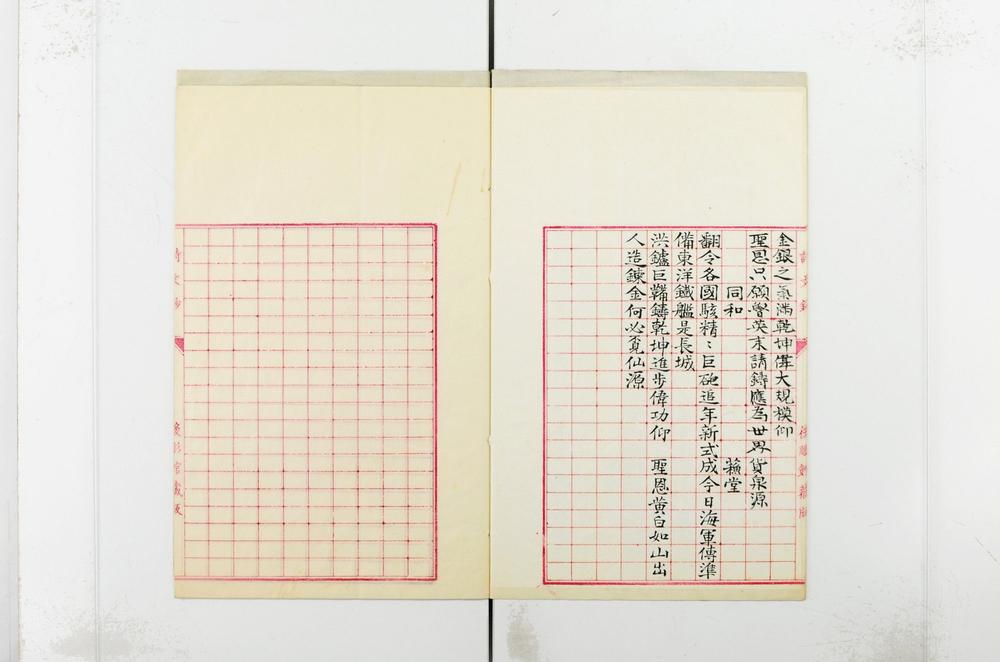 金銀之氣滿乾坤偉大規模仰
聖恩只願英請鑄應為世界貨泉源
同和 蘓堂
翻令各國駭精〻巨砲追年新式成今日海軍傳準
備東洋鐵艦是長城
洪鑪巨鞴鑄乾坤進步偉功仰 聖恩黃白如山出
人造鍊金何必覓仙源
詩文鈔